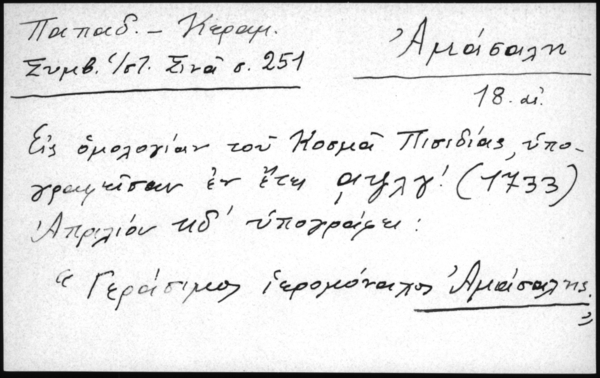 Παπαδ. - Κεραμ.
Συμβ. ἱστ. Σινᾶ σ. 251
Ἀμάσαλη
18. αἰ.
Εἰς ὁμολογίαν τοῦ Κοσμᾶ Πισιδίας, ὑπο-
γραφεῖσαν ἐν ἔτει ͵αψλγ! (1733)
Ἀπριλίου κδ' ὑπογράφει :
“ Γεράσιμος ἱερομόναχος Ἀμάσαλης. ”